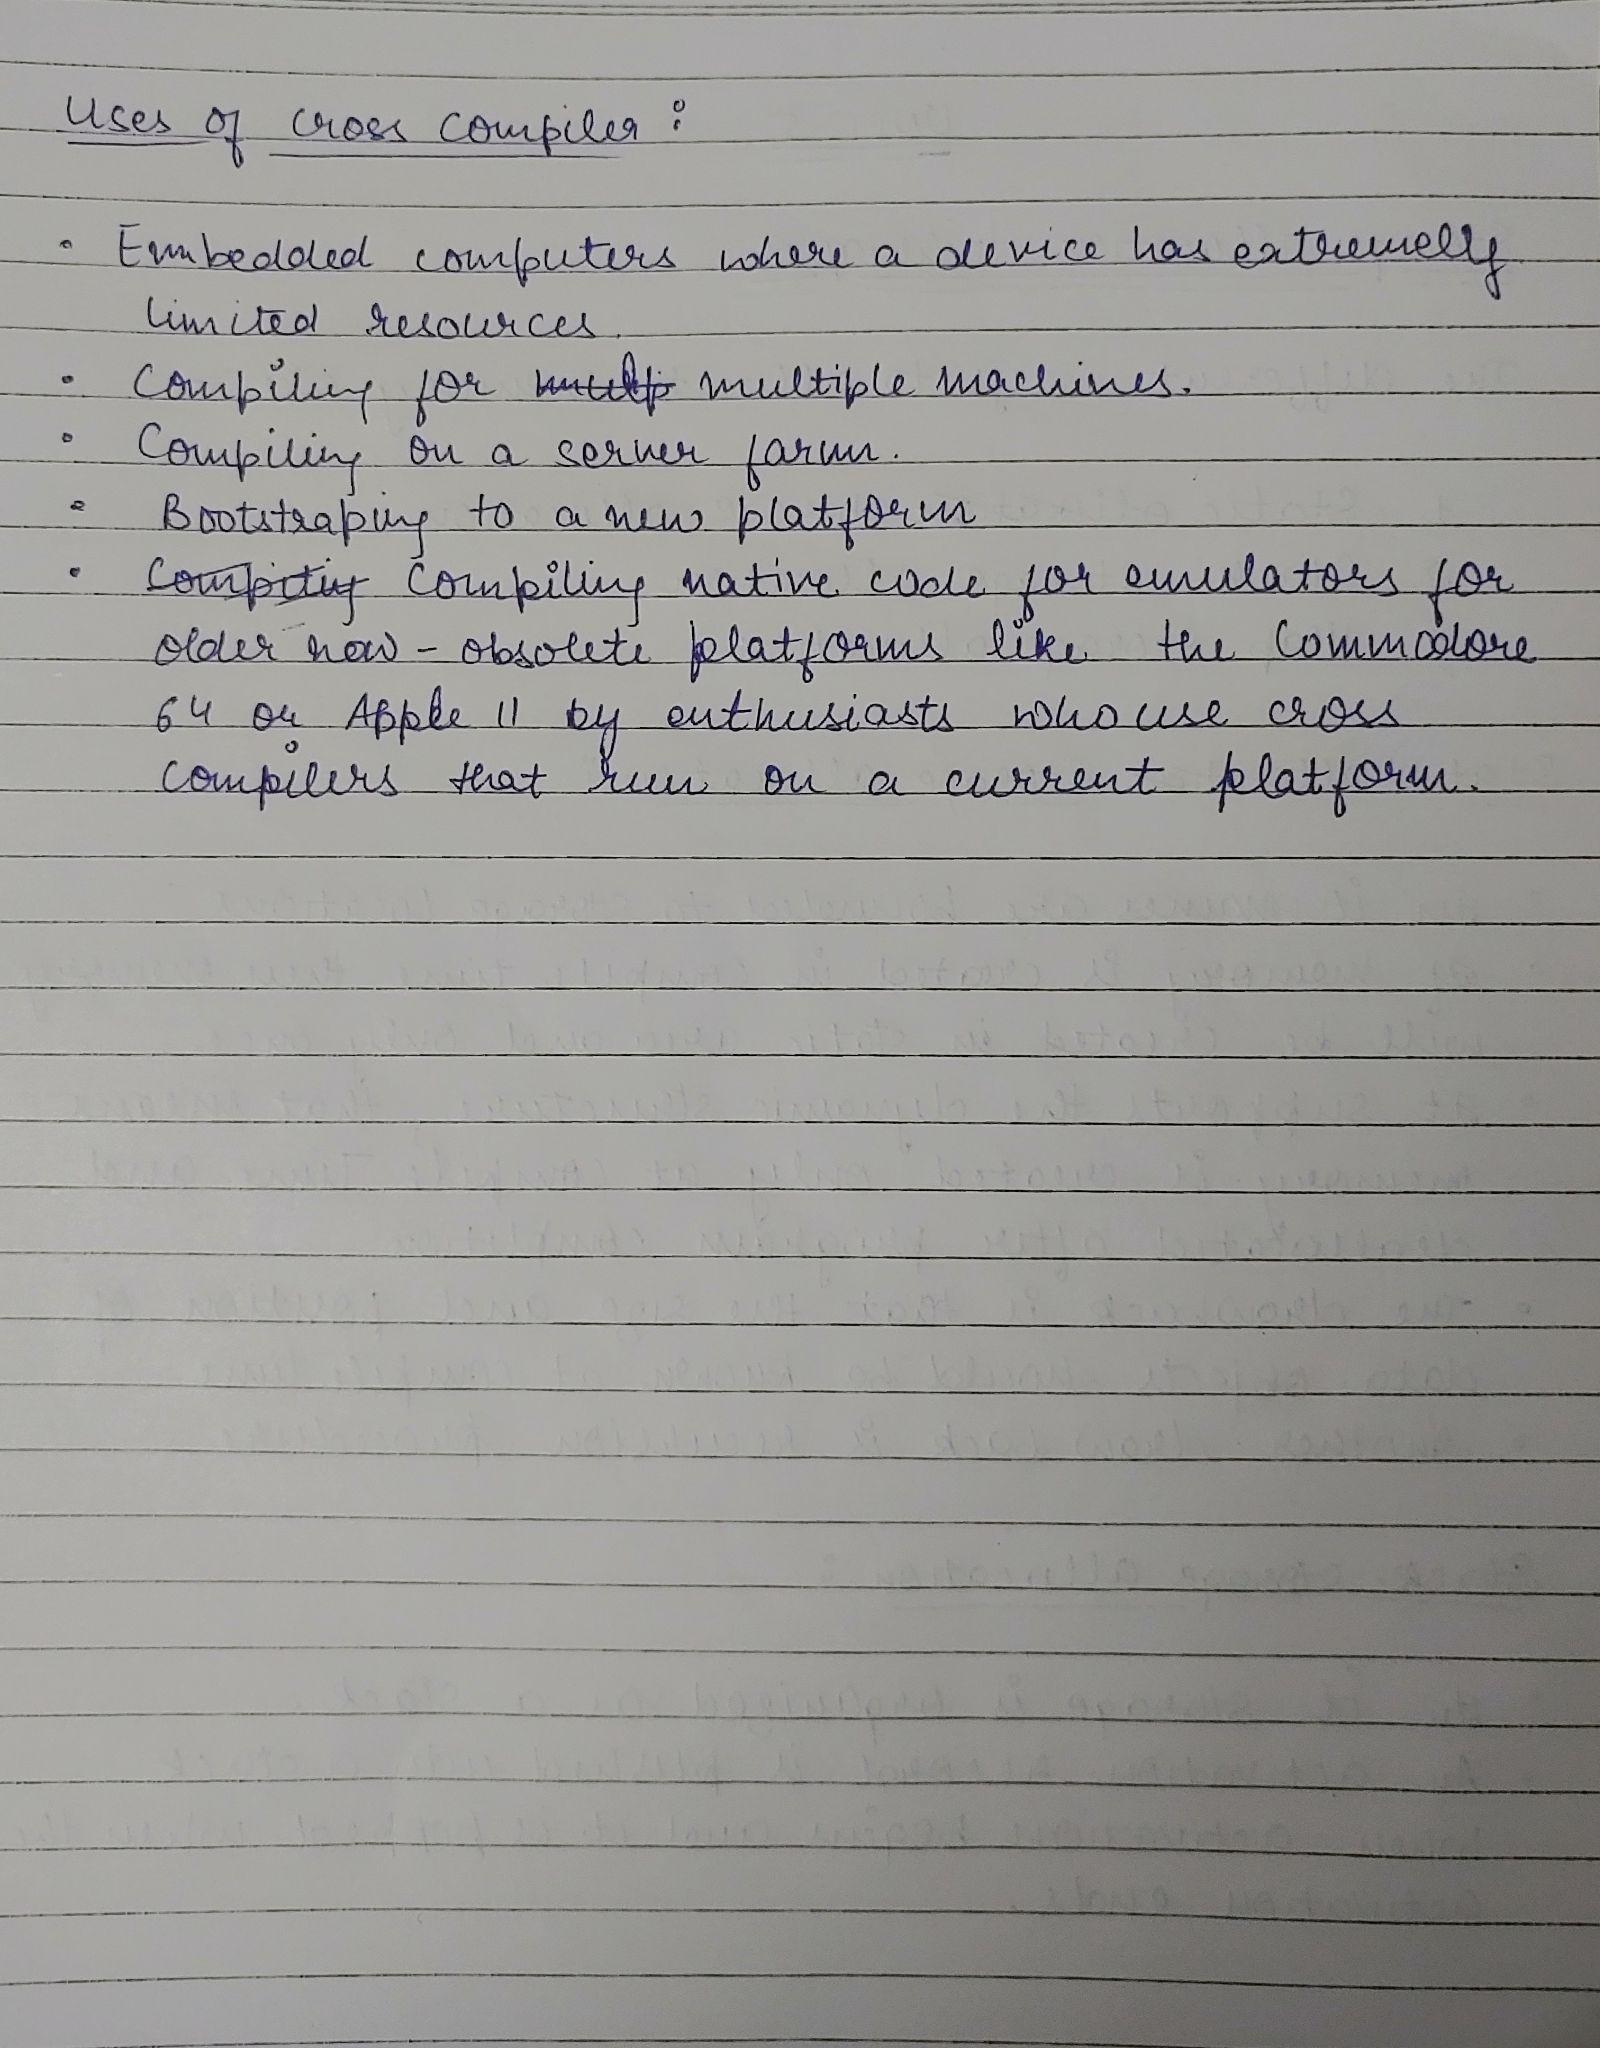 Uses of cross compiler :
• Embedded computers where a device has extremelly
limited resources.
• Compiling for multiple machines.
• Compiling on a server farm.
• Bootstraping to a new platform
• Compiling native code for emulators for
older now - obsolete platforms like the Commodore
64 or Apple 11 by enthusiasts who use cross
compilers that run on a current platform.